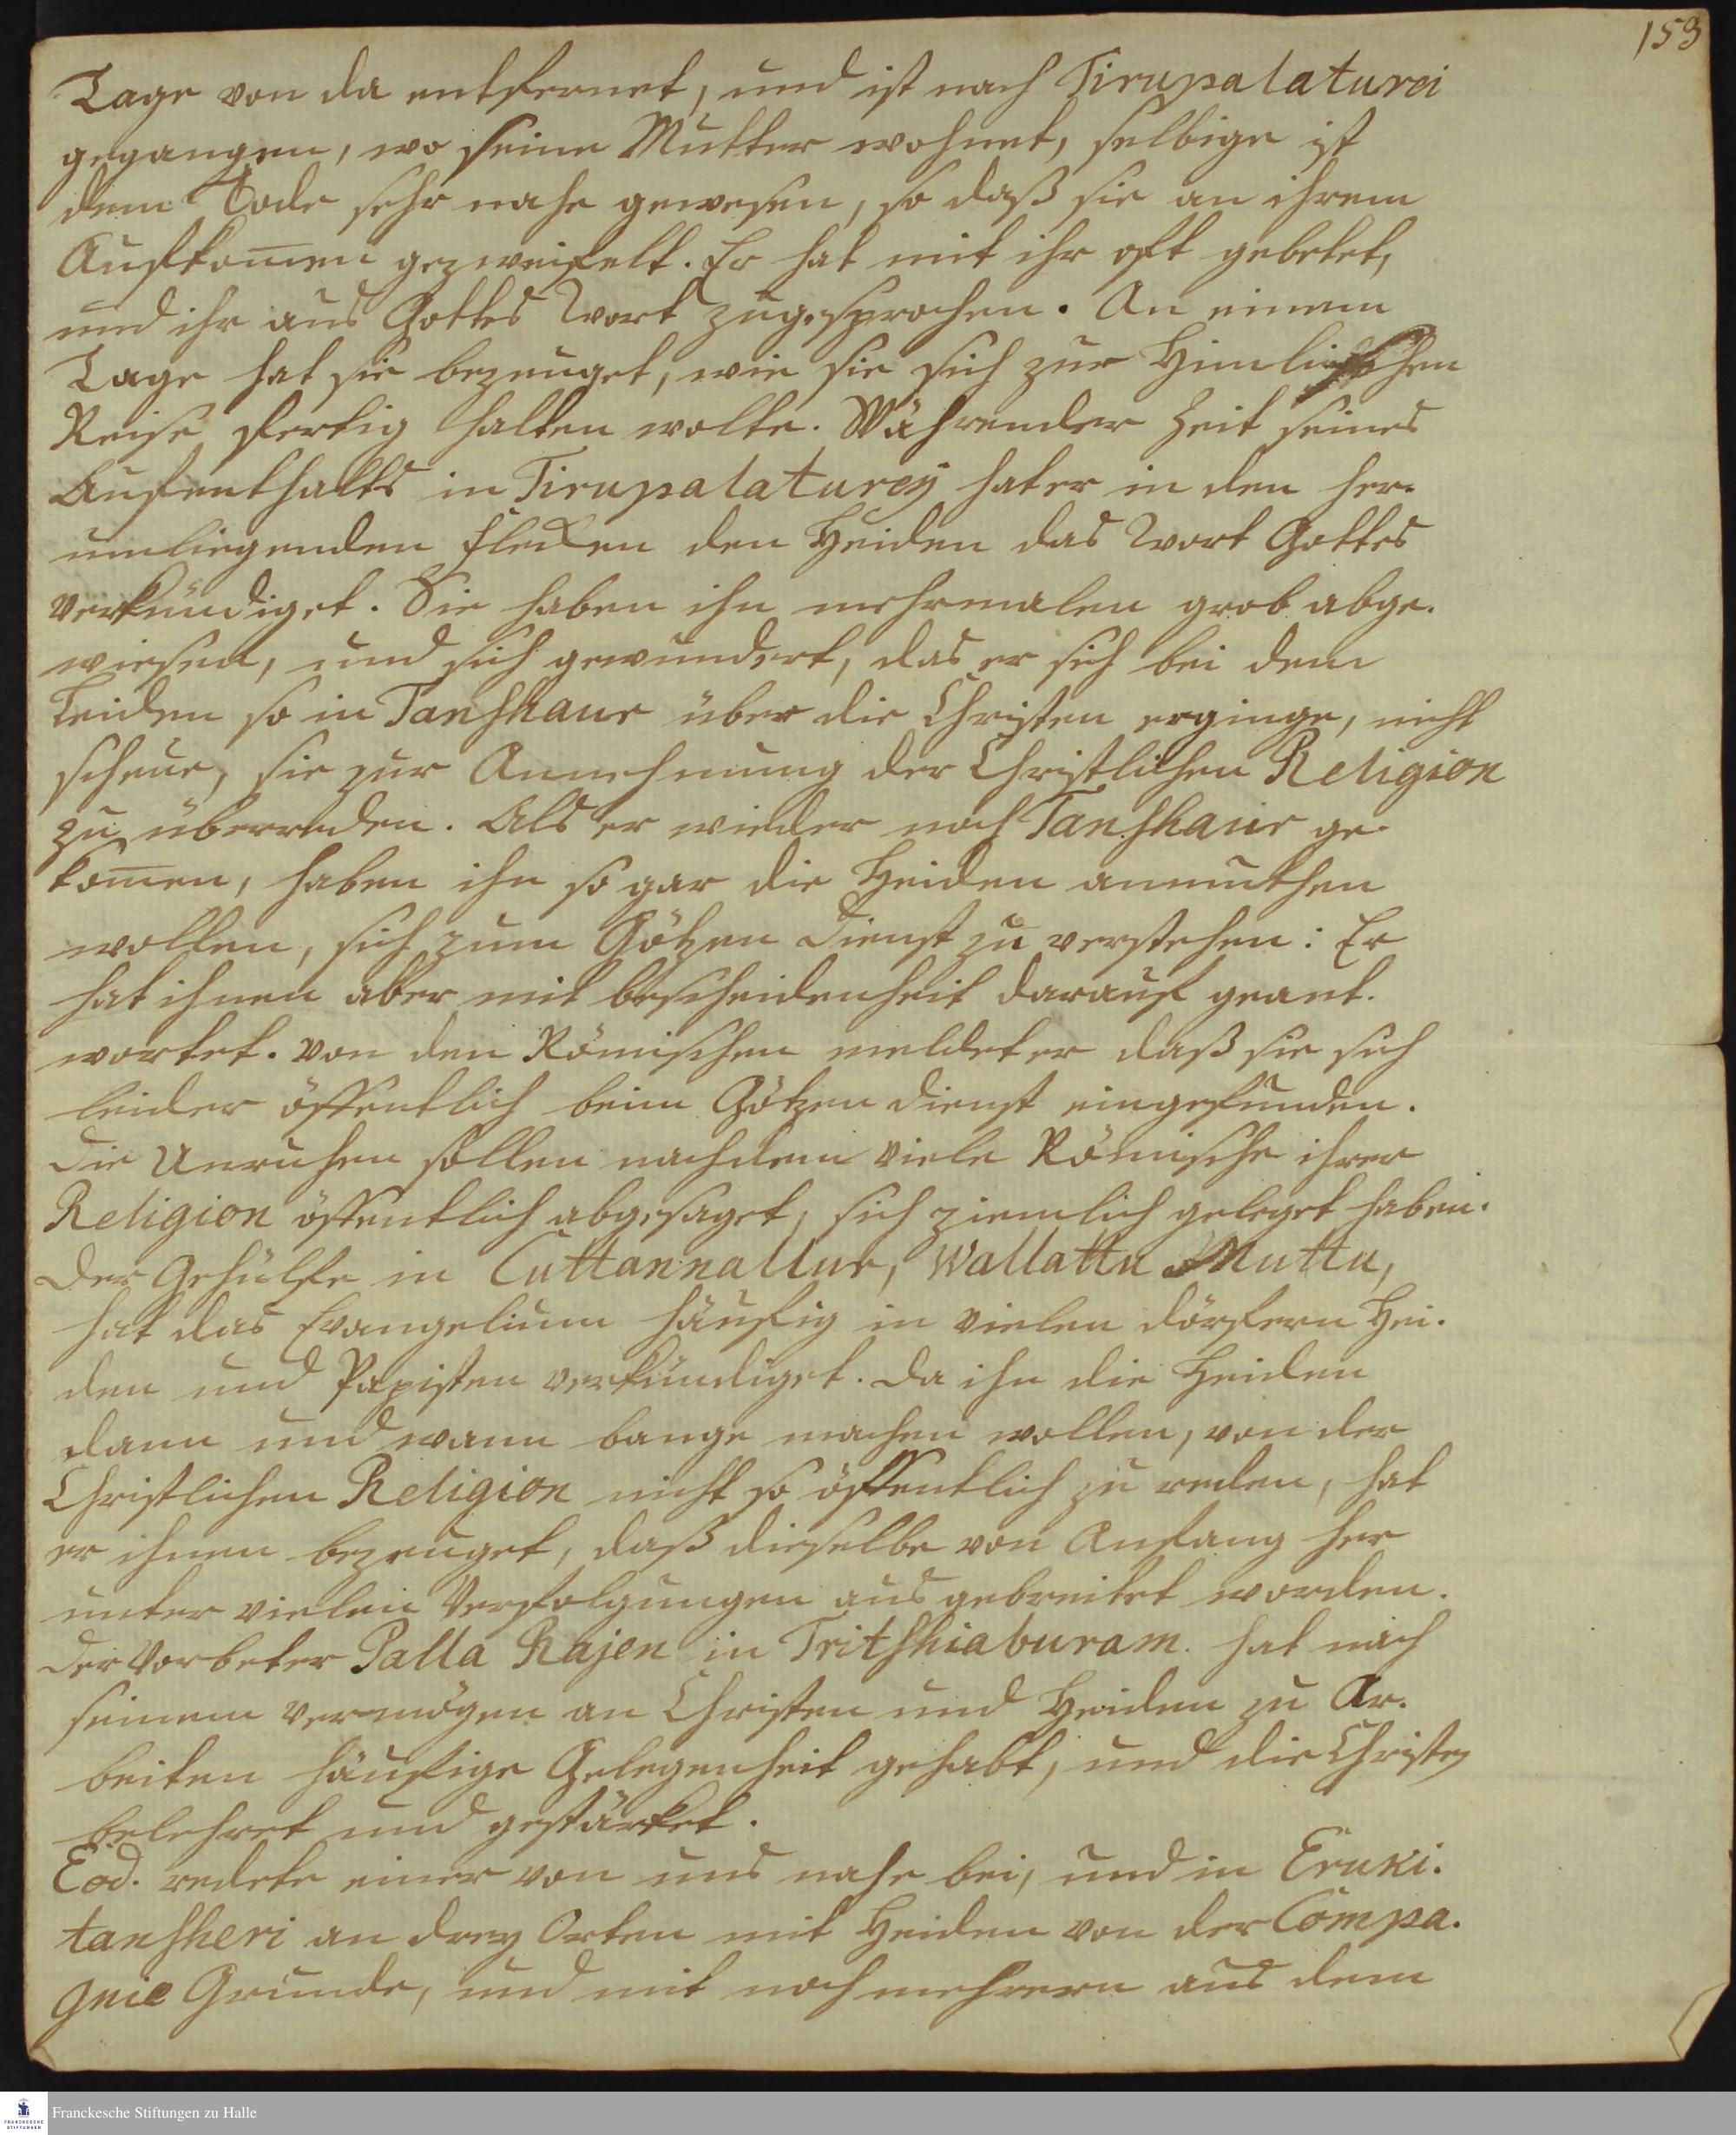 153
Tage von da entfernet, und ist nach Tirupalaturei
gegangen, wo seine Mutter wohnet, selbige ist
dem Tode sehr nahe gewesen, so daß sie an ihrem
Aufkom̅en gezweifelt. Er hat mit ihr oft gebetet,
und ihr aus Gottes Wort zugesprochen. An einem
Tage hat sie bezeuget, wie sie sich zur Himlischen
Reise fertig halten wolte. Währender Zeit seines
Aufenthalts in Tirupalaturey hat er in den her-
umliegenden Flecken den Heiden das Wort Gottes
verkündiget. Sie haben ihn mehrmalen grob abge-
wiesen, und sich gewundert, das er sich bei dem
Leiden so in Tanshaur über die Christen erginge, nicht
scheue, sie zur Annehmung der Christlichen Religion
zu überreden. Als er wieder nach Tanshaur ge-
kom̅en, haben ihn so gar die Heiden anmuthen
wollen, sich zum Götzen dienst zu verstehen: Er
hat ihnen aber mit bescheidenheit darauf geant-
wortet. von den Römischen meldet er daß sie sich
leider öffentlich beim Götzen dienst eingefunden.
die Unruhen sollen nachdem viele Römische ihrer
Religion öffentlich abgesaget, sich ziemlich geleget haben.
der Gehülfe in Cuttannallur, Wallattu Muttu,
hat das Evangelium häufig in vielen dörfern Hei-
den und Papisten verkündiget. da ihn die Heiden
dann und wann bange machen wollen, von der
Christlichen Religion nicht so öffentlich zu reden, hat
er ihnen bezeuget, daß dieselbe von Anfang her
unter vielen Verfolgungen aus gebreitet worden.
der Vorbeter Palla Rajen in Tritshiaburam. hat nach
seinem vermögen an Christen und Heiden zu Ar-
beiten häufige Gelegenheit gehabt, und die Christen
belehret und gestärket.
Eod. redete einer von uns nahe bei, und in Eruki-
tansheri an drey Orten mit Heiden von der Compa-
gnie Grunde, und mit noch mehrern aus dem
Franckesche Stiftungen zu Halle